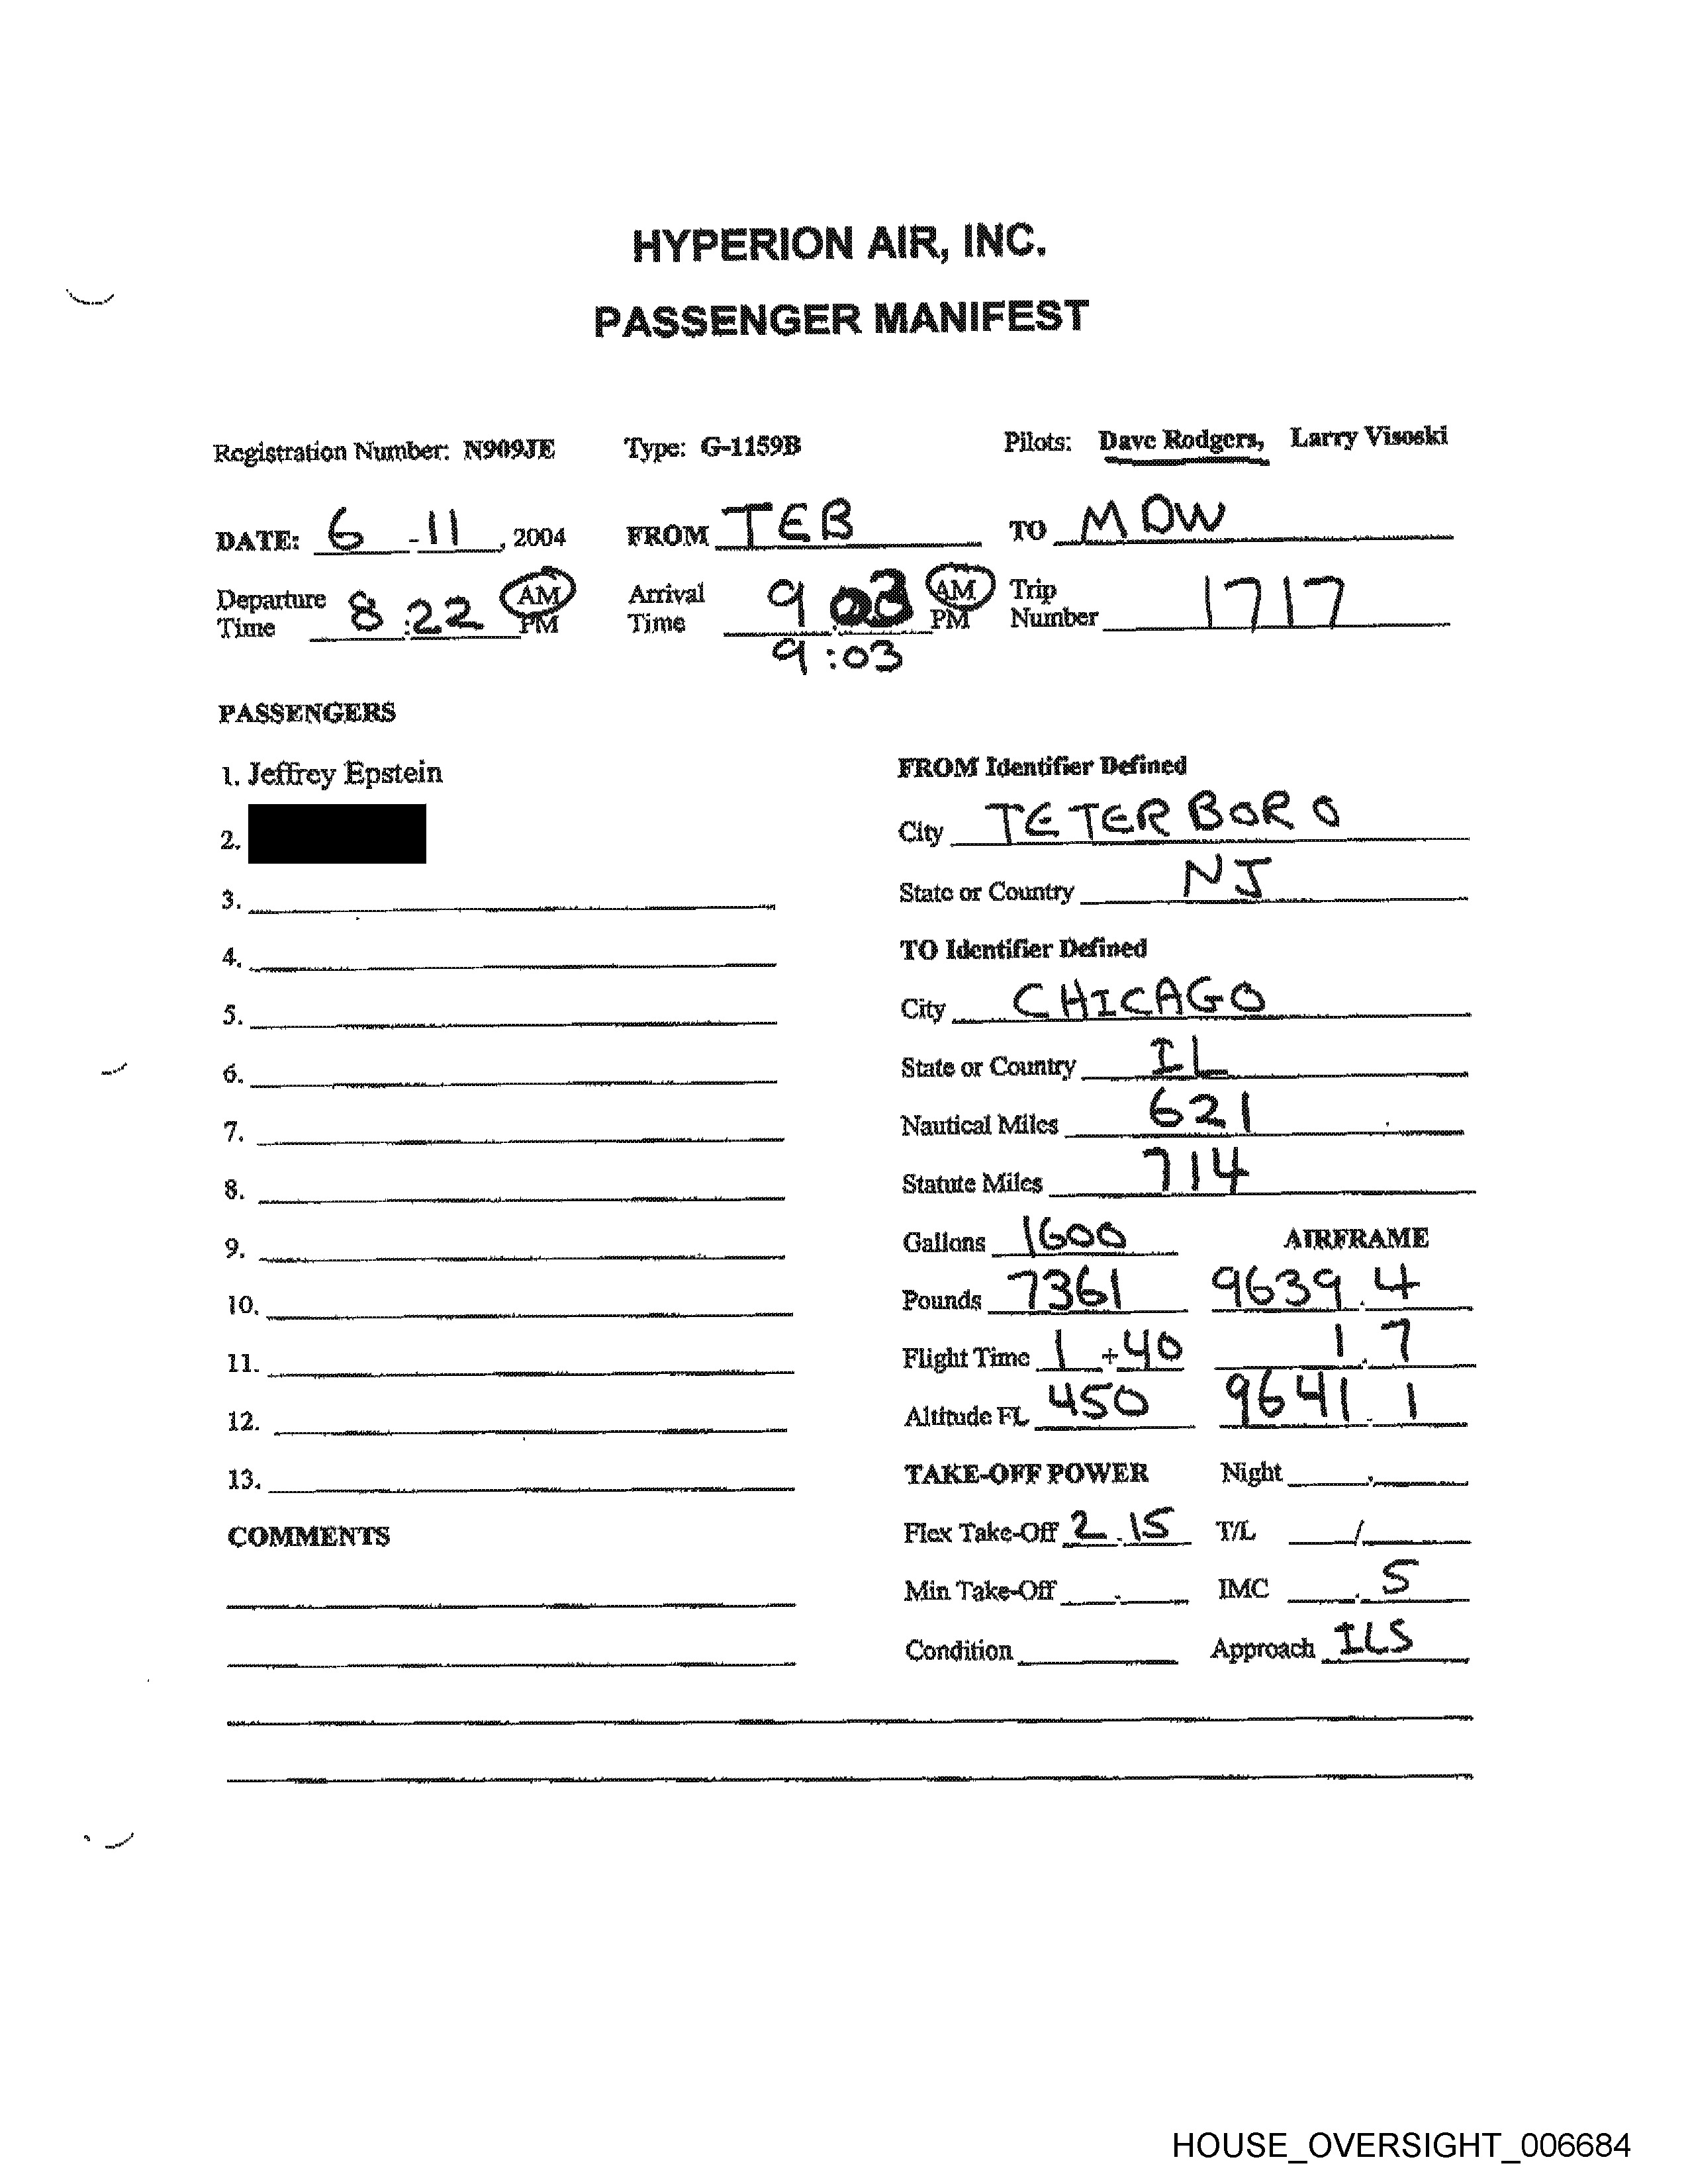 HYPERION AIR, INC.
PASSENGER MANIFEST
Registration Number: N909JE Type: G-1159B Pilots: Dave Rodgers, Larry Visoski
DATE: 6 - 11, 2004 FROM TEB TO MDW
Departure Time 8:22 AM PM Arrival Time 9 03 AM PM Trip Number 1717
9:03
PASSENGERS
1. Jeffrey Epstein
2.
3.
4.
5.
6.
7.
8.
9.
10.
11.
12.
13.
COMMENTS
FROM Identifier Defined
City TETERBORO
State or Country NJ
TO Identifier Defined
City CHICAGO
State or Country IL
Nautical Miles 621
Statute Miles 714
Gallons 1600 AIRFRAME
Pounds 7361 9639.4
Flight Time 1 + 40 1.7
Altitude FL 450 9641.1
TAKE-OFF POWER Night .
Flex Take-Off 2.15 T/L /
Min Take-Off . IMC .5
Condition Approach ILS
HOUSE_OVERSIGHT_006684